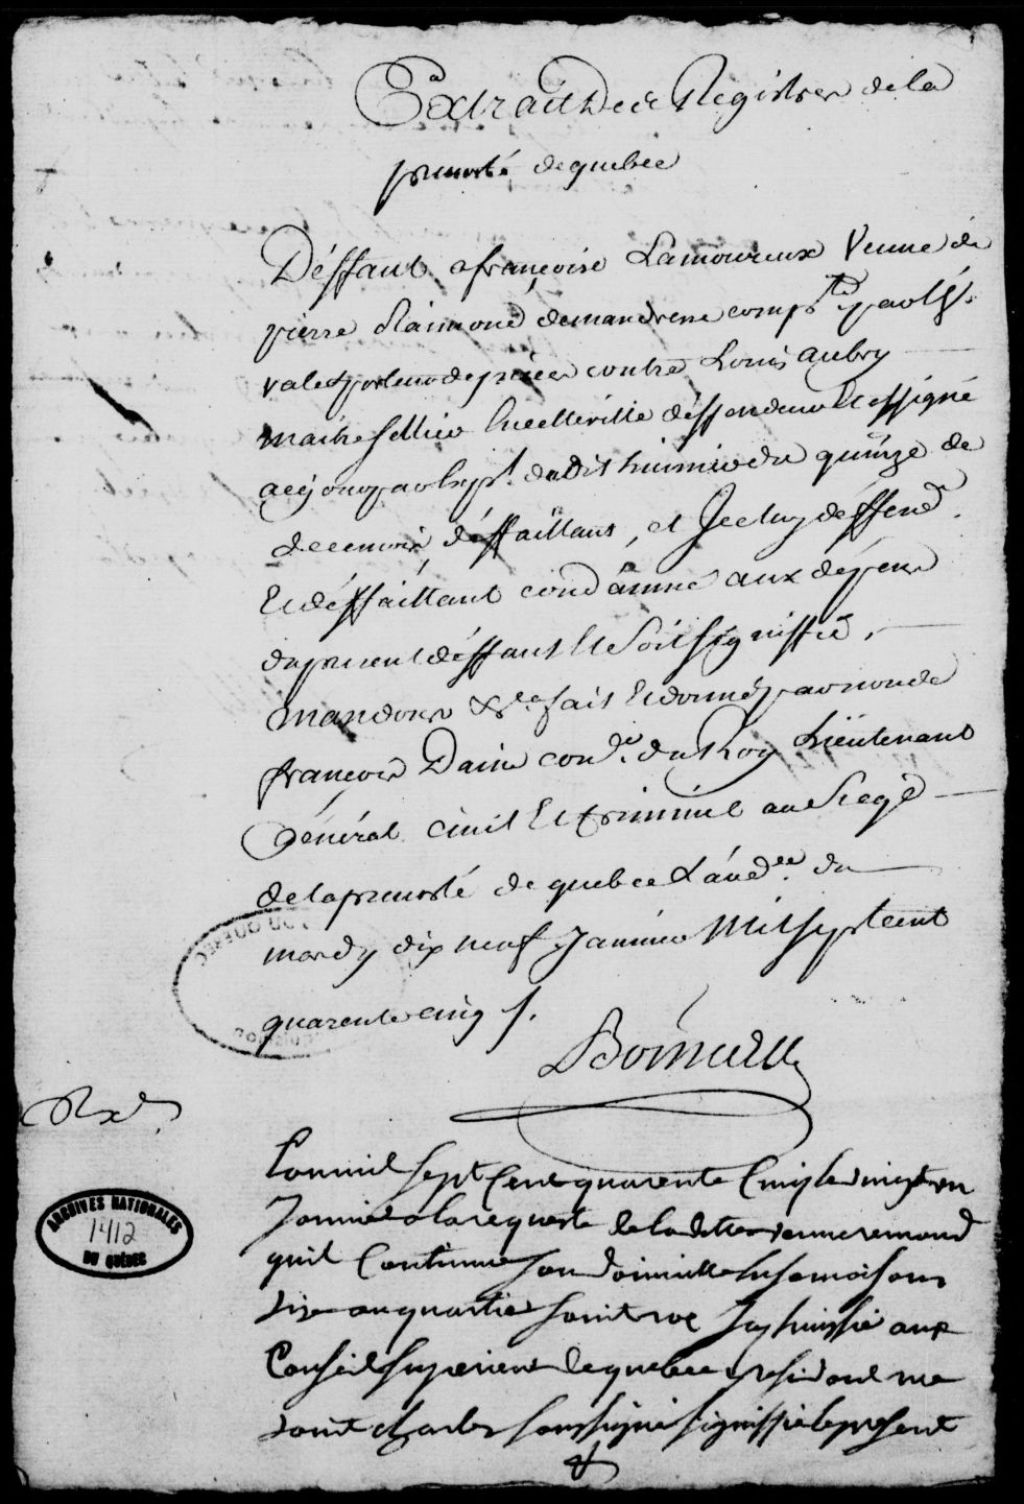 Extrait des Registres de la
prevosté de quebec
Déffaut a françoise Lamoureux Veuve de
pierre Raimond demandresse comp.te par
valet porteur de pieces contre Louis aubry
maitre sellier en cette ville déffendeur et assigné
a ce jour par exp.t dudit huissier du quinze de
decembre déffaillant, et Iceluy déffend.r
et déffaillant condâmné aux dépens
du present déffaut et soit signiffié,
mandons &.a fait et donné par nous
françois Daine con.er du Roy Lieutenant
Général civil et criminel au siege
de la prevosté de quebec L'aud.ce du
mardy dix neuf Janvier Mil sept cent
quarente cinq /.
Boisseau
Rx.d
L'an mil sept cent quarente cinq le vingt un
Janvier a la requeste de laditte veuve remond
quil continue son domicille en sa maison
size au quartier saint roc Jay huissier aux
Conseil superieur de quebec y residant rue
saint charles soussigné signiffié le present
ARCHIVES NATIONALES
1412
DU QUÉBEC